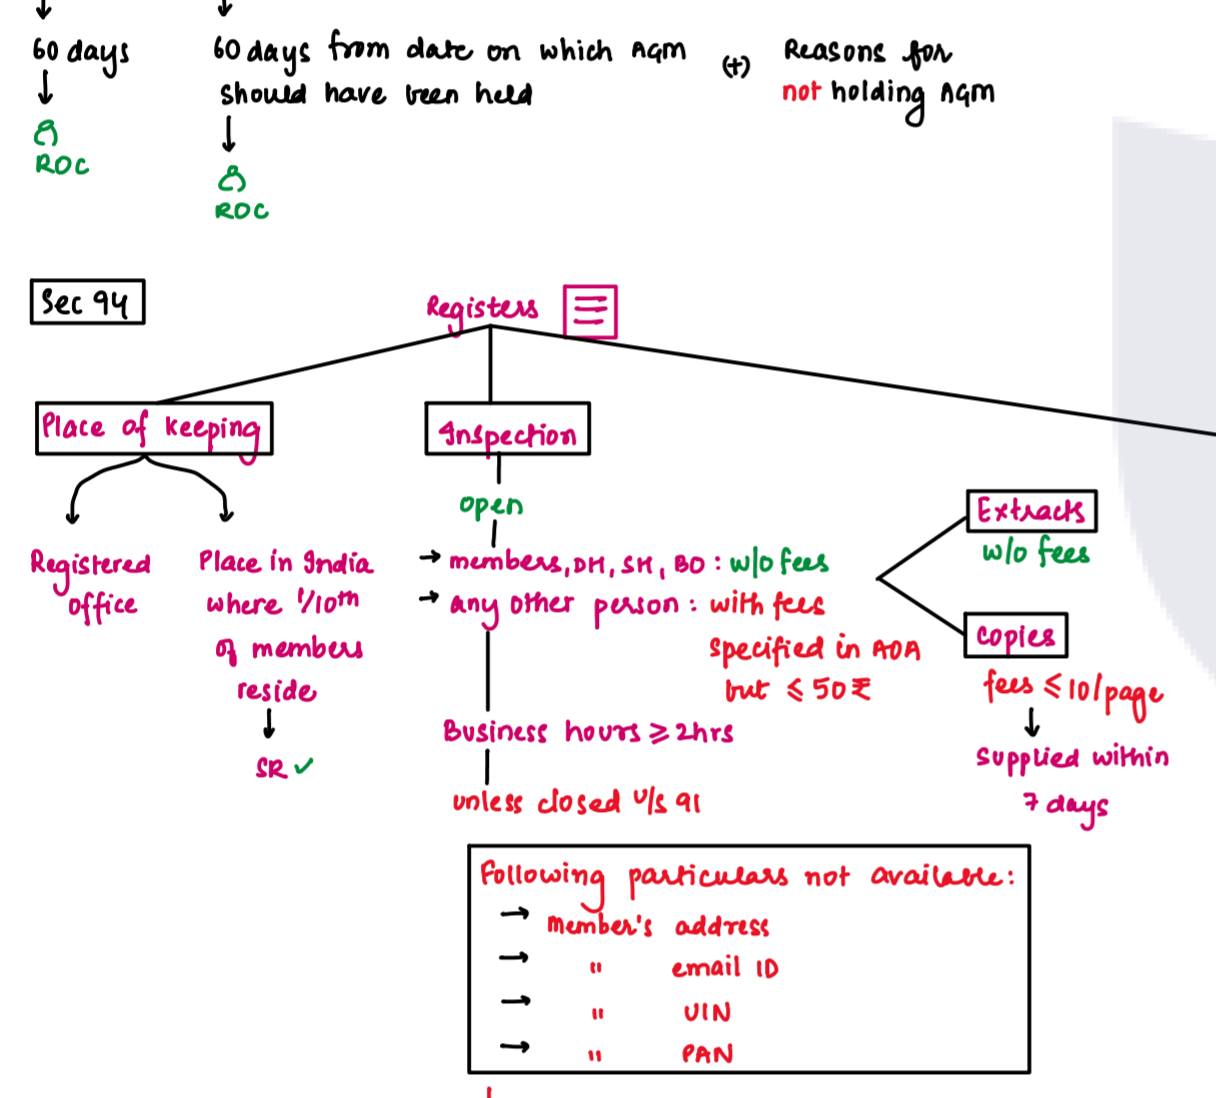 60 days
ROC
60 days from date on which AGM
should have been held
ROC
(+)
Reasons for
not holding AGM
Sec 94
Registers
Place of keeping
Registered
office
Place in India
where 1/10th
of members
reside
SR ✓
Inspection
open
→ members, DH, SH, BO : w/o fees
→ any other person : with fees
specified in AOA
but ≤ 50 ₹
Business hours ≥ 2hrs
unless closed u/s 91
Extracts
w/o fees
Copies
fees ≤ 10/page
supplied within
7 days
Following particulars not available:
→ member's address
→ " email ID
→ " UIN
→ " PAN